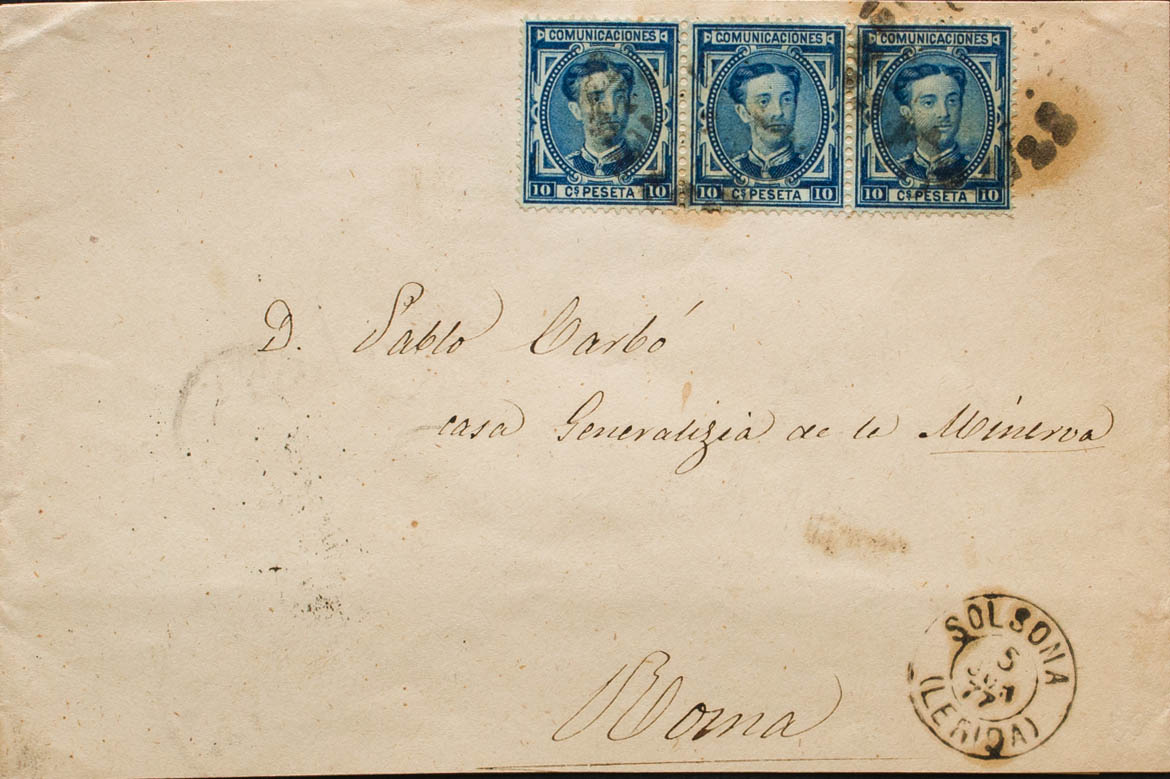 COMUNICACIONES COMUNICACIONES COMUNICACIONES
10 Cs PESETA 10 10 Cs PESETA 10 10 Cs PESETA 10
D. Pablo Carbó
casa Generalizia de la Minerva
Roma
SOLSONA
5
77
(LERIDA)